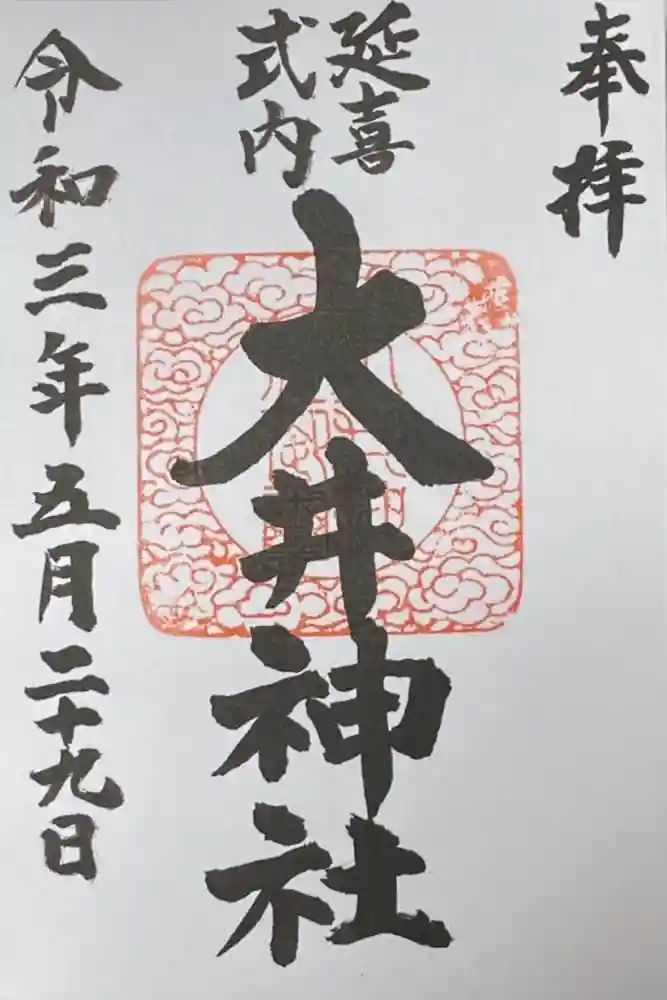 奉拝
延喜
式内
大井神社
令和三年五月二十九日